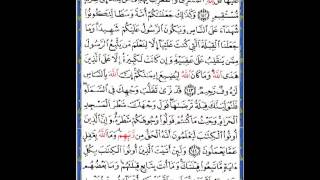 مُّسْتَقِيمٖ ١٤٢ وَكَذَٰلِكَ جَعَلۡنَٰكُمۡ أُمَّةٗ وَسَطٗا لِّتَكُونُواْ
شُهَدَآءَ عَلَى ٱلنَّاسِ وَيَكُونَ ٱلرَّسُولُ عَلَيۡكُمۡ شَهِيدٗاۗ وَمَا
جَعَلۡنَا ٱلۡقِبۡلَةَ ٱلَّتِي كُنتَ عَلَيۡهَآ إِلَّا لِنَعۡلَمَ مَن يَتَّبِعُ ٱلرَّسُولَ
مِمَّن يَنقَلِبُ عَلَىٰ عَقِبَيۡهِۚ وَإِن كَانَتۡ لَكَبِيرَةً إِلَّا عَلَى ٱلَّذِينَ
هَدَى ٱللَّهُۗ وَمَا كَانَ ٱللَّهُ لِيُضِيعَ إِيمَٰنَكُمۡۚ إِنَّ ٱللَّهَ بِٱلنَّاسِ
لَرَءُوفٞ رَّحِيمٞ ١٤٣ قَدۡ نَرَىٰ تَقَلُّبَ وَجۡهِكَ فِي ٱلسَّمَآءِۖ
فَلَنُوَلِّيَنَّكَ قِبۡلَةٗ تَرۡضَىٰهَاۚ فَوَلِّ وَجۡهَكَ شَطۡرَ ٱلۡمَسۡجِدِ
ٱلۡحَرَامِۚ وَحَيۡثُ مَا كُنتُمۡ فَوَلُّواْ وُجُوهَكُمۡ شَطۡرَهُۥۗ وَإِنَّ ٱلَّذِينَ
أُوتُواْ ٱلۡكِتَٰبَ لَيَعۡلَمُونَ أَنَّهُ ٱلۡحَقُّ مِن رَّبِّهِمۡۗ وَمَا ٱللَّهُ بِغَٰفِلٍ
عَمَّا يَعۡمَلُونَ ١٤٤ وَلَئِنۡ أَتَيۡتَ ٱلَّذِينَ أُوتُواْ ٱلۡكِتَٰبَ بِكُلِّ
ءَايَةٖ مَّا تَبِعُواْ قِبۡلَتَكَۚ وَمَآ أَنتَ بِتَابِعٖ قِبۡلَتَهُمۡۚ وَمَا بَعۡضُهُم